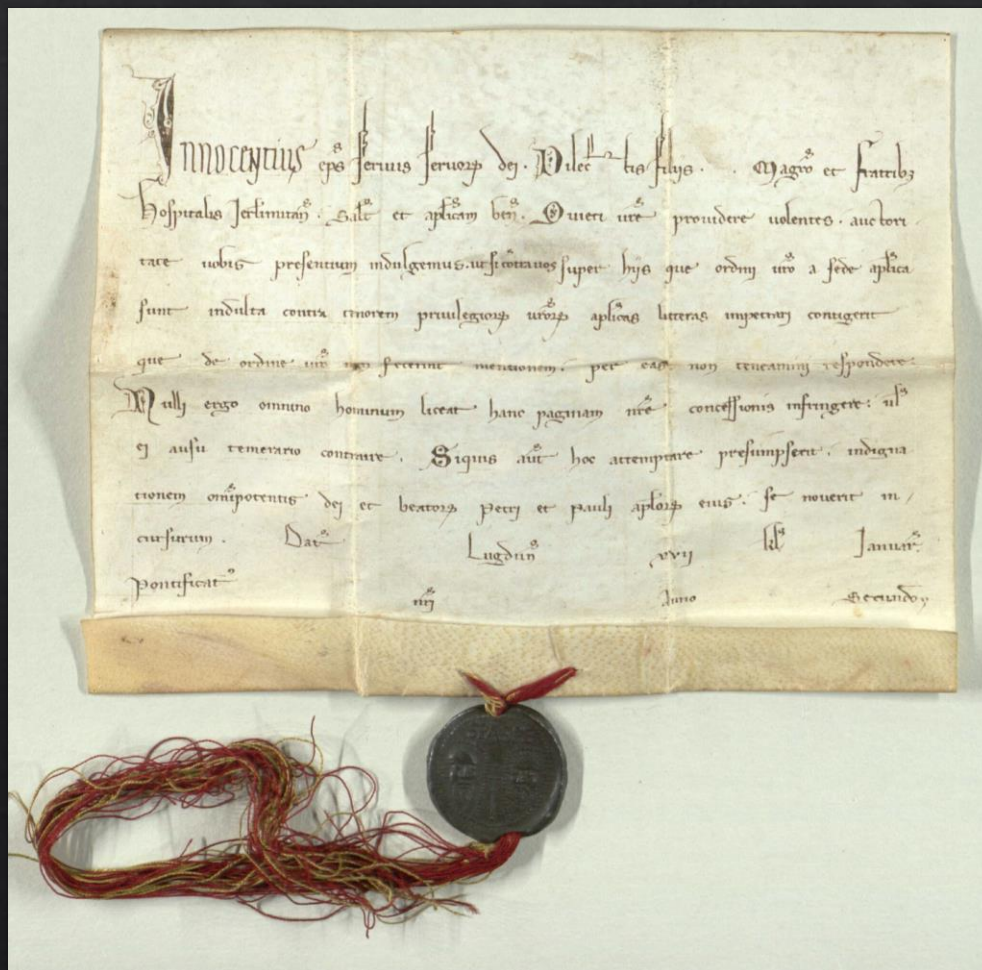 Innocentius eps seruus seruorꝝ dei. Dilectis filijs. . Magro et fratribꝫ
Hospitalis Jerlimitan̄. Salt et aplicam ben̄. Quieti ure prouidere uolentes. auctori
tate uobis presentium indulgemus. ut si contra uos super hijs que ordini uro a sede aplica
sunt indulta contra tenorem priuilegiorꝝ urorꝝ aplicas litteras impetrari contigerit
que de ordine uro non fecerint mentionem. per eas non teneamini respondere.
Nulli ergo omnino hominum liceat hanc paginam nre concessionis infringere. ul
ei ausu temerario contraire. Siquis aut hoc attemptare presumpserit. indigna
tionem omipotentis dei et beatorꝝ Petri et Pauli aplorꝝ eius. se nouerit in
cursurum. Dat Lugdun̄ xvii kl Januar.
Pontificat nri Anno Secundo